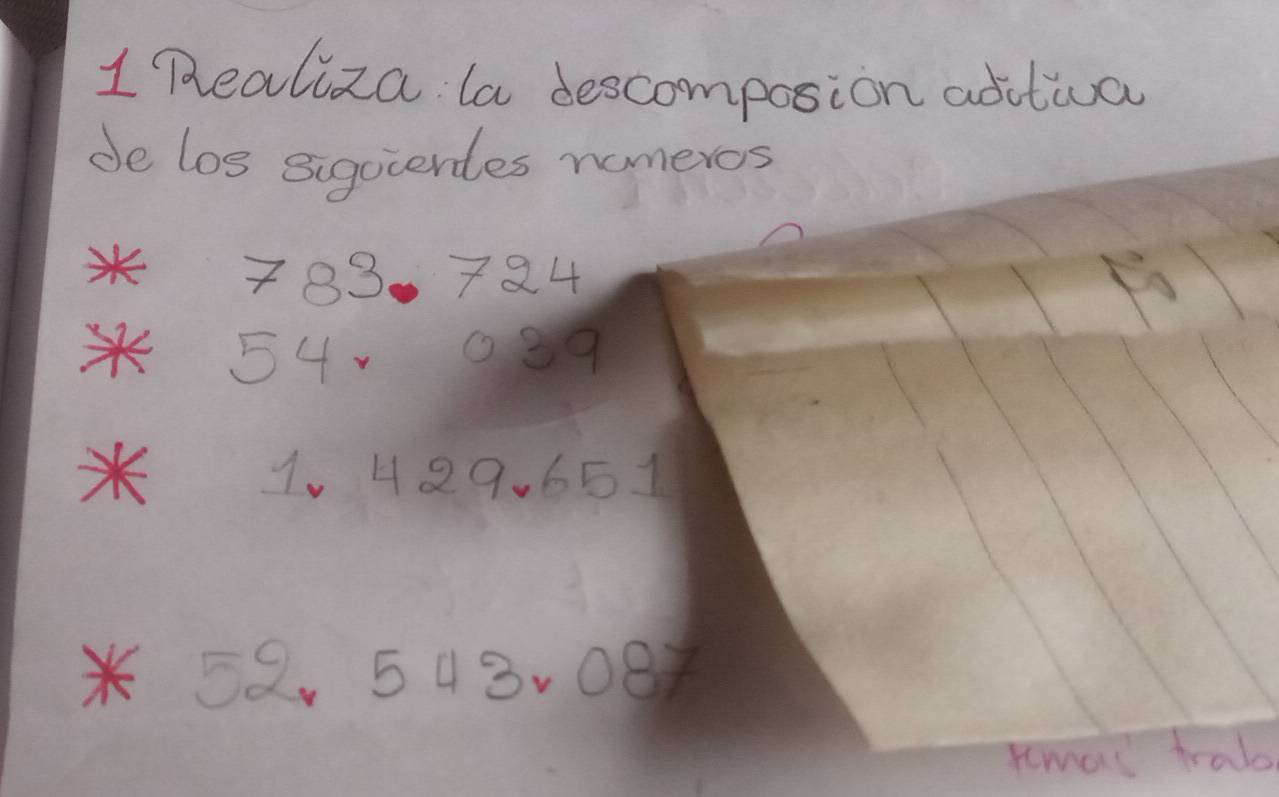 1 Realiza la descomposión aditiva
de los siguientes numeros
* 783.724
* 54. 039
* 1. 429.651
* 52. 543.087
temas